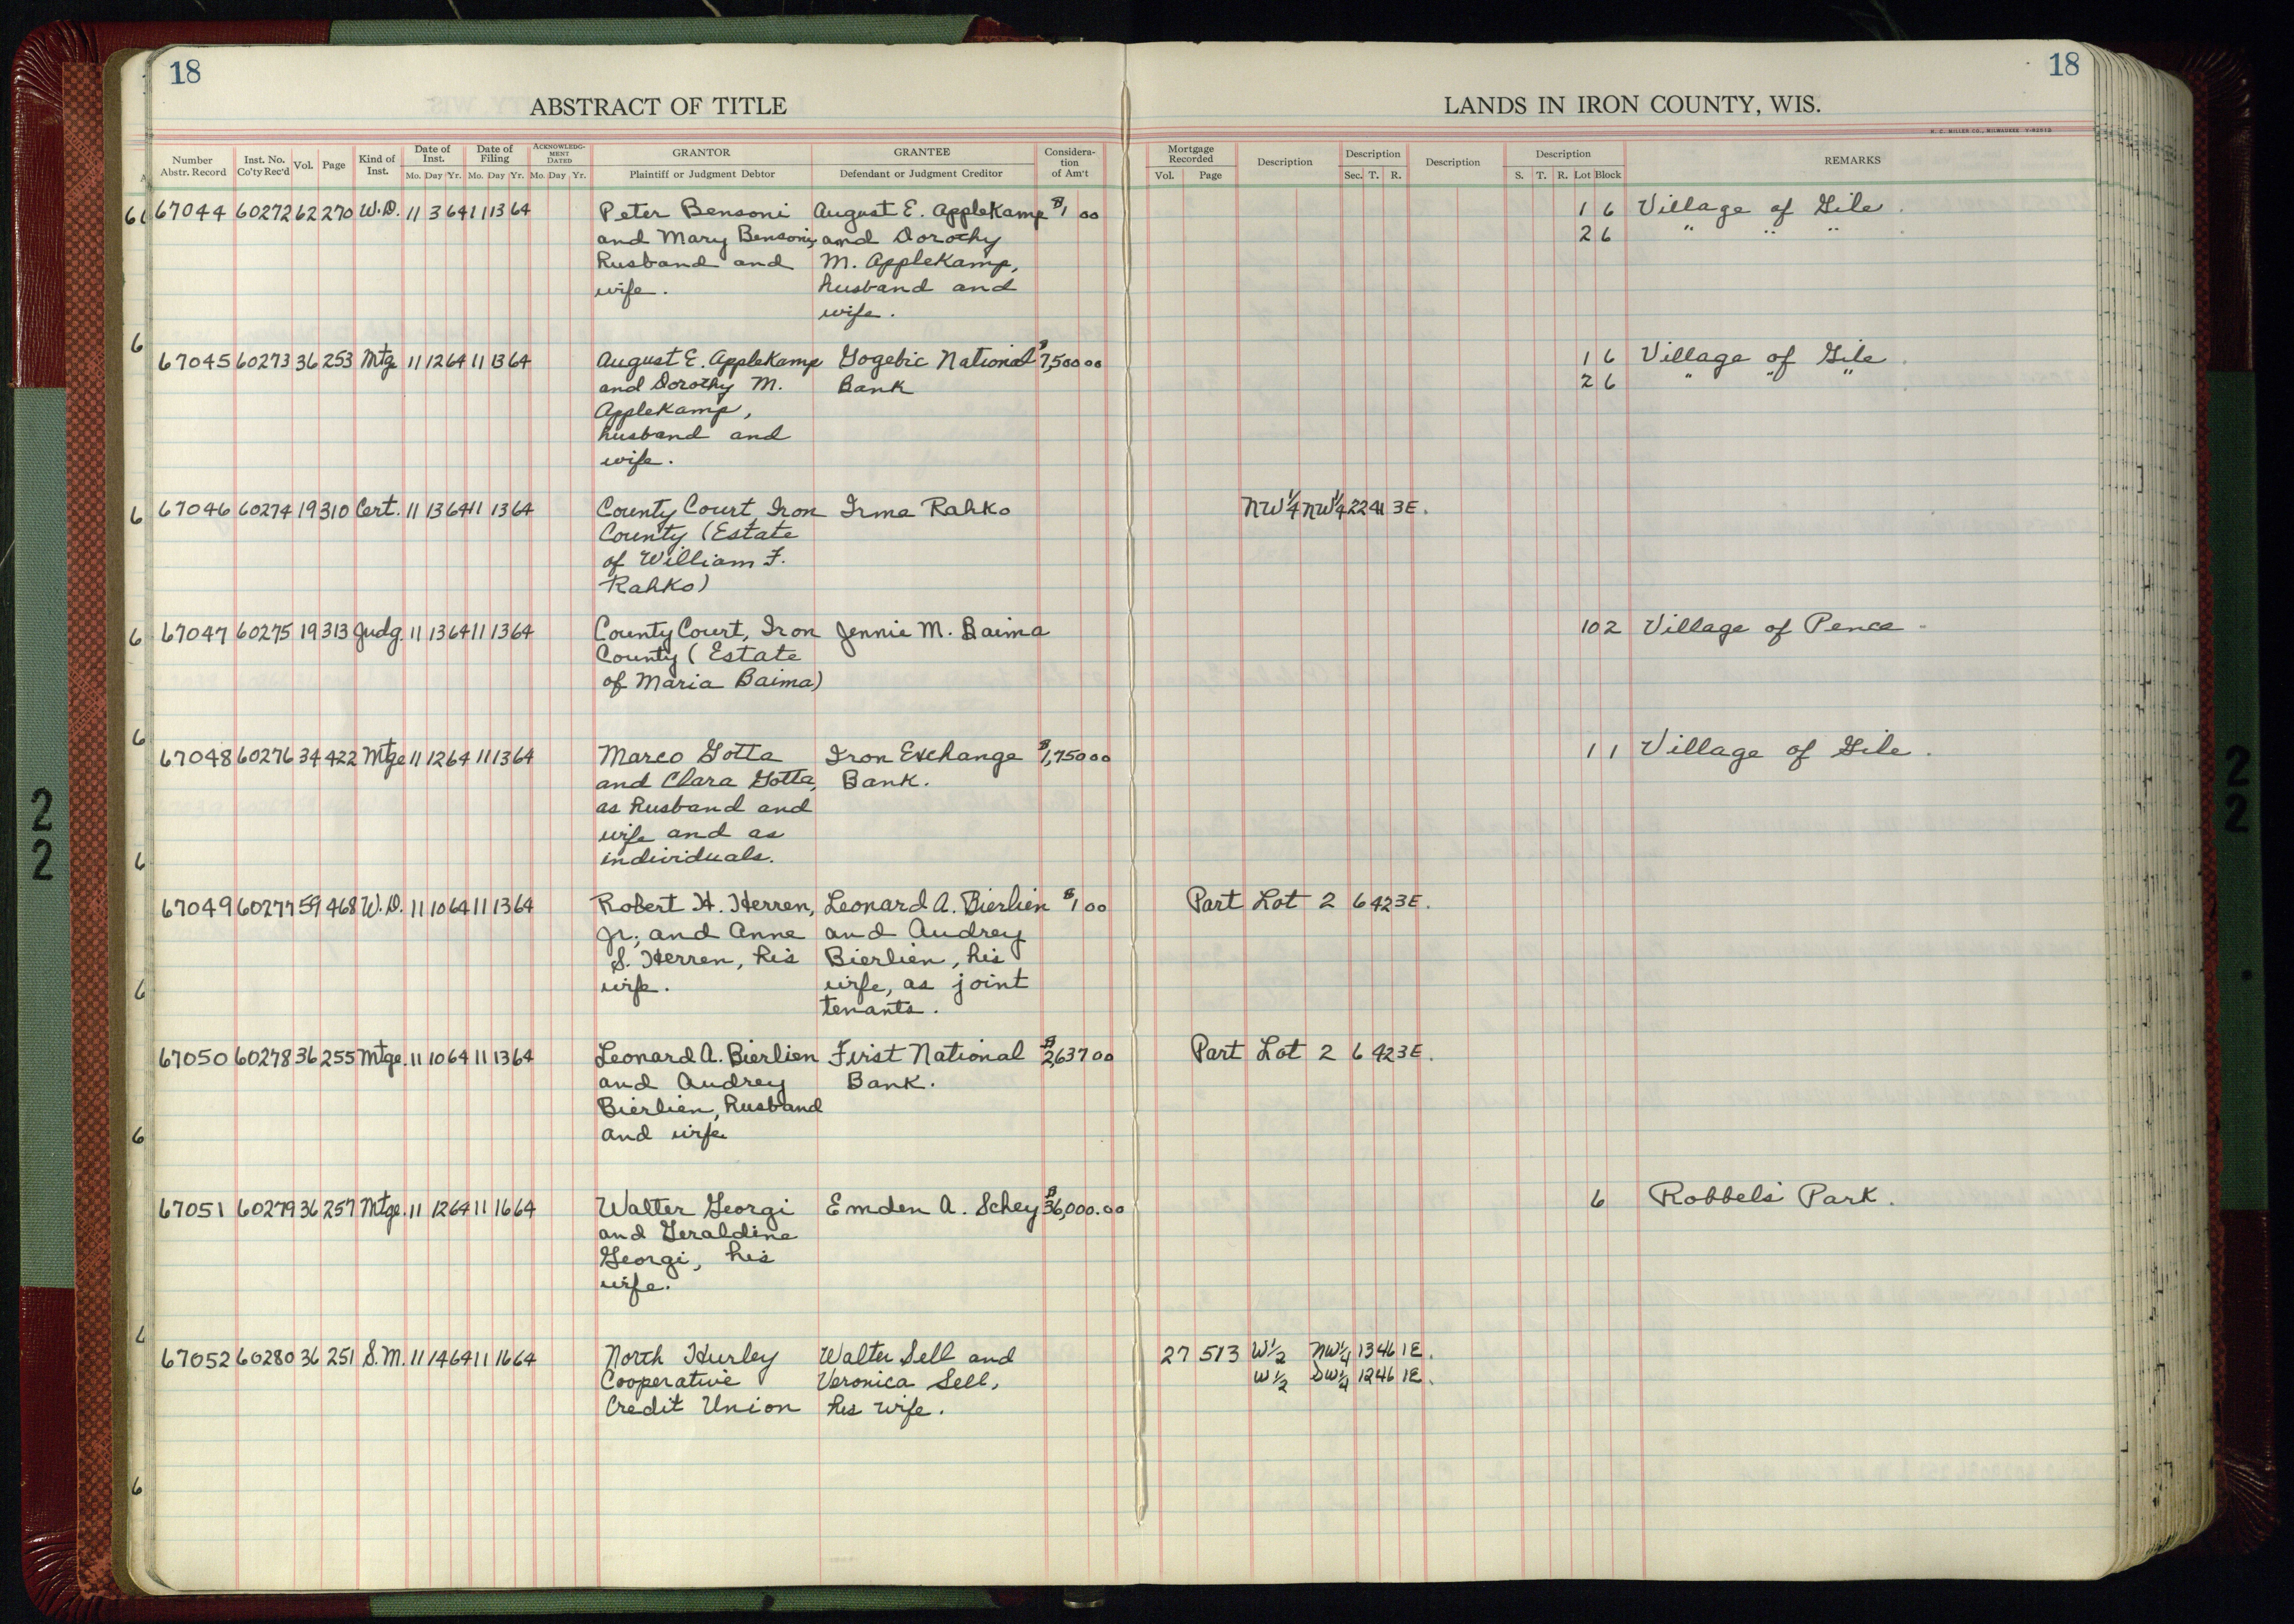 18
18
ABSTRACT OF TITLE
LANDS IN IRON COUNTY, WIS.
H. C. MILLER CO., MILWAUKEE
Number Abstr. Record Inst. No. Co'ty Rec'd Vol. Page Kind of Inst. Date of Inst. Mo. Day Yr. Date of Filing Mo. Day Yr. ACKNOWLEDGMENT DATED Mo. Day Yr. GRANTOR Plaintiff or Judgment Debtor GRANTEE Defendant or Judgment Creditor Consideration of Am't Mortgage Recorded Vol. Page Description Description Sec. T. R. Description Description S. T. R. Lot Block REMARKS
67044 60272 62 270 W.D. 11 3 64 11 13 64 Peter Bensoni August E. Applekamp $1 00 1 6 Village of Gile.
and Mary Bensoni, and Dorothy 2 6 " " "
husband and M. Applekamp,
wife. husband and
wife.
67045 60273 36 253 Mtg 11 12 64 11 13 64 August E. Applekamp Gogebic National $7,500 00 1 6 Village of Gile.
and Dorothy M. Bank 2 6 " " "
Applekamp,
husband and
wife.
67046 60274 19 310 Cert. 11 13 64 11 13 64 County Court, Iron Irma Rahko NW¼ NW¼ 22 41 3E.
County (Estate
of William F.
Rahko)
67047 60275 19 313 Judg. 11 13 64 11 13 64 County Court, Iron Jennie M. Baima 10 2 Village of Pence
County (Estate
of Maria Baima)
67048 60276 34 422 Mtge 11 12 64 11 13 64 Marco Gotta Iron Exchange $1,750 00 1 1 Village of Gile.
and Clara Gotta, Bank.
as husband and
wife and as
individuals.
67049 60277 59 468 W.D. 11 10 64 11 13 64 Robert H. Herren, Leonard A. Bierlien $1 00 Part Lot 2 6 42 3E.
Jr., and Anne and Audrey
S. Herren, his Bierlien, his
wife. wife, as joint
tenants.
67050 60278 36 255 Mtge. 11 10 64 11 13 64 Leonard A. Bierlien First National $2,637 00 Part Lot 2 6 42 3E.
and Audrey Bank.
Bierlien, husband
and wife
67051 60279 36 257 Mtge. 11 12 64 11 16 64 Walter Georgi Emden A. Schey $36,000.00 6 Robbels' Park.
and Geraldine
Georgi, his
wife.
67052 60280 36 251 S.M. 11 14 64 11 16 64 North Hurley Walter Sell and 27 513 W½ NW¼ 13 46 1E.
Cooperative Veronica Sell, W½ SW¼ 12 46 1E.
Credit Union his wife.
22
22